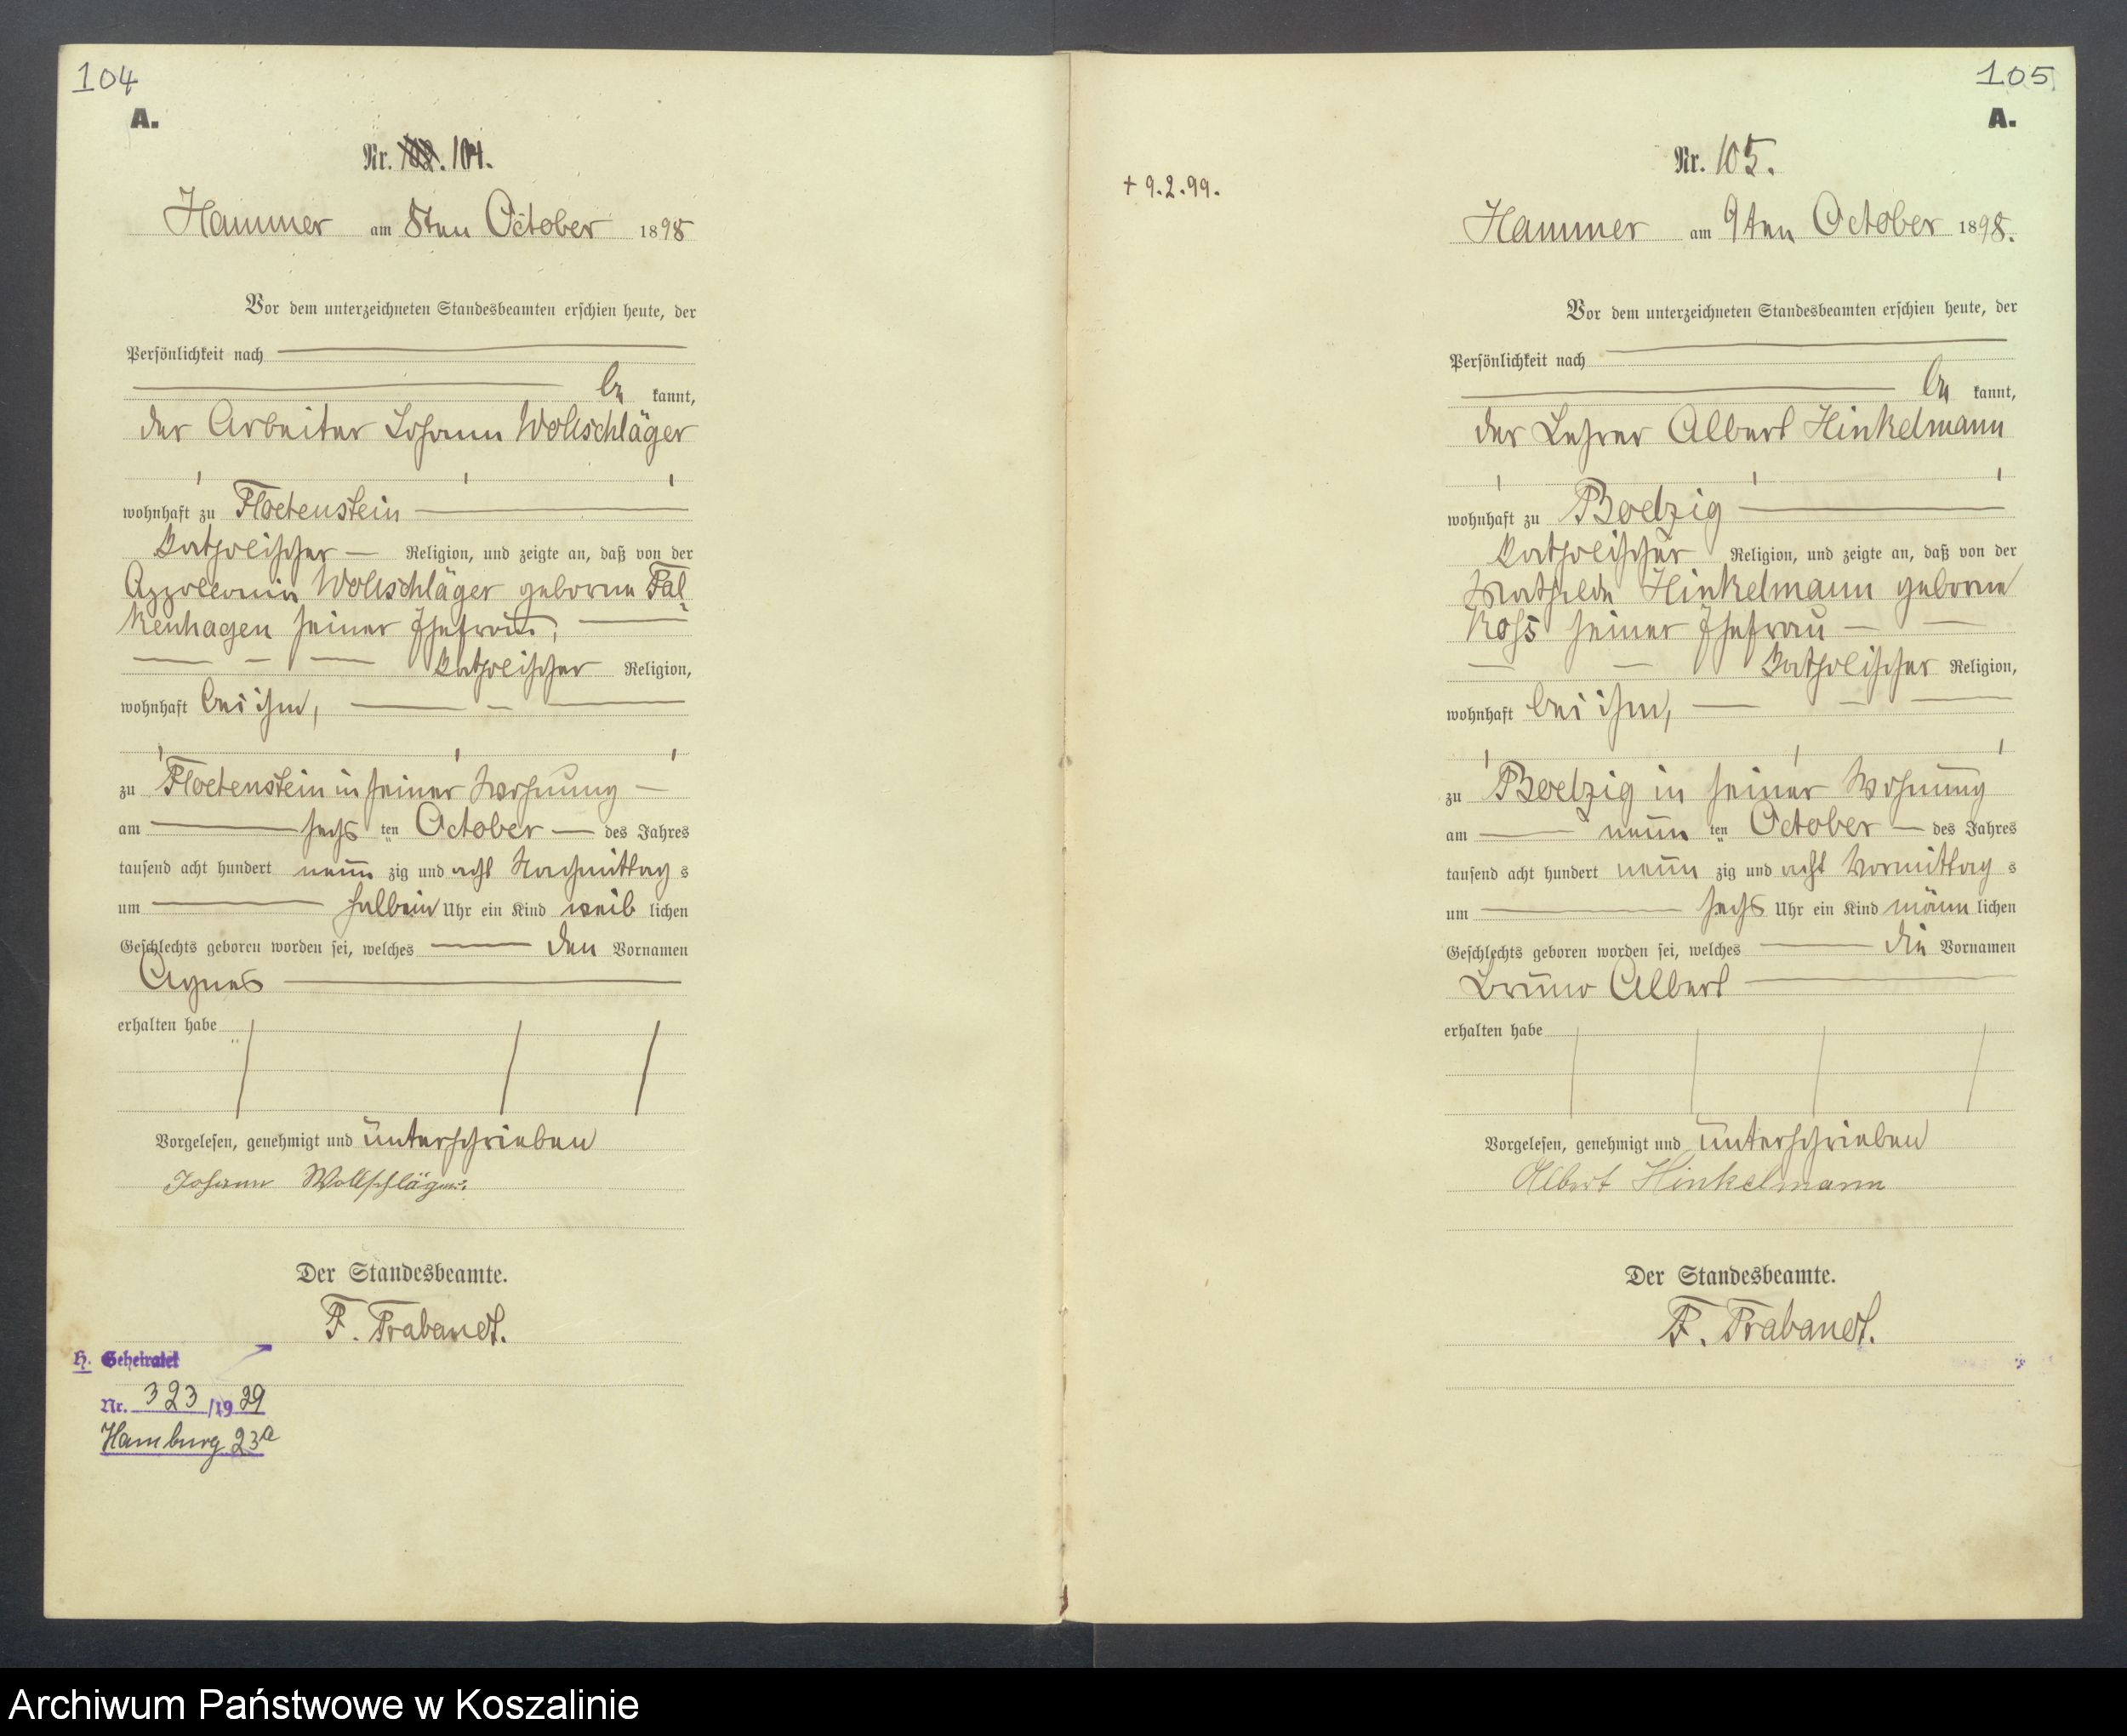 104
A.
Nr. 104.
Hammer am 8ten October 1898
Vor dem unterzeichneten Standesbeamten erschien heute, der
Persönlichkeit nach
be kannt,
der Arbeiter Johann Wollschläger
wohnhaft zu Floetenstein
katholischer Religion, und zeigte an, daß von der
Appolonia Wollschläger geborne Fal-
kenhagen seiner Ehefrau,
katholischer Religion,
wohnhaft bei ihm,
zu Floetenstein in seiner Wohnung
am sechs ten October des Jahres
tausend acht hundert neun zig und acht Nachmittag s
um halbein Uhr ein Kind weib lichen
Geschlechts geboren worden sei, welches den Vornamen
Agnes
erhalten habe
Vorgelesen, genehmigt und unterschrieben
Johann Wollschläger.
Der Standesbeamte.
F. Trabandt.
H. Geheiratet
Nr. 323/1929
Hamburg 23a
+ 9.2.99.
105
A.
Nr. 105.
Hammer am 9ten October 1898.
Vor dem unterzeichneten Standesbeamten erschien heute, der
Persönlichkeit nach
be kannt,
der Lehrer Albert Hinkelmann
wohnhaft zu Boelzig
katholischer Religion, und zeigte an, daß von der
Mathilde Hinkelmann geborne
Koss seiner Ehefrau
katholischer Religion,
wohnhaft bei ihm,
zu Boelzig in seiner Wohnung
am neun ten October des Jahres
tausend acht hundert neun zig und acht Vormittag s
um sechs Uhr ein Kind männ lichen
Geschlechts geboren worden sei, welches die Vornamen
Bruno Albert
erhalten habe
Vorgelesen, genehmigt und unterschrieben
Albert Hinkelmann
Der Standesbeamte.
F. Trabandt.
Archiwum Państwowe w Koszalinie